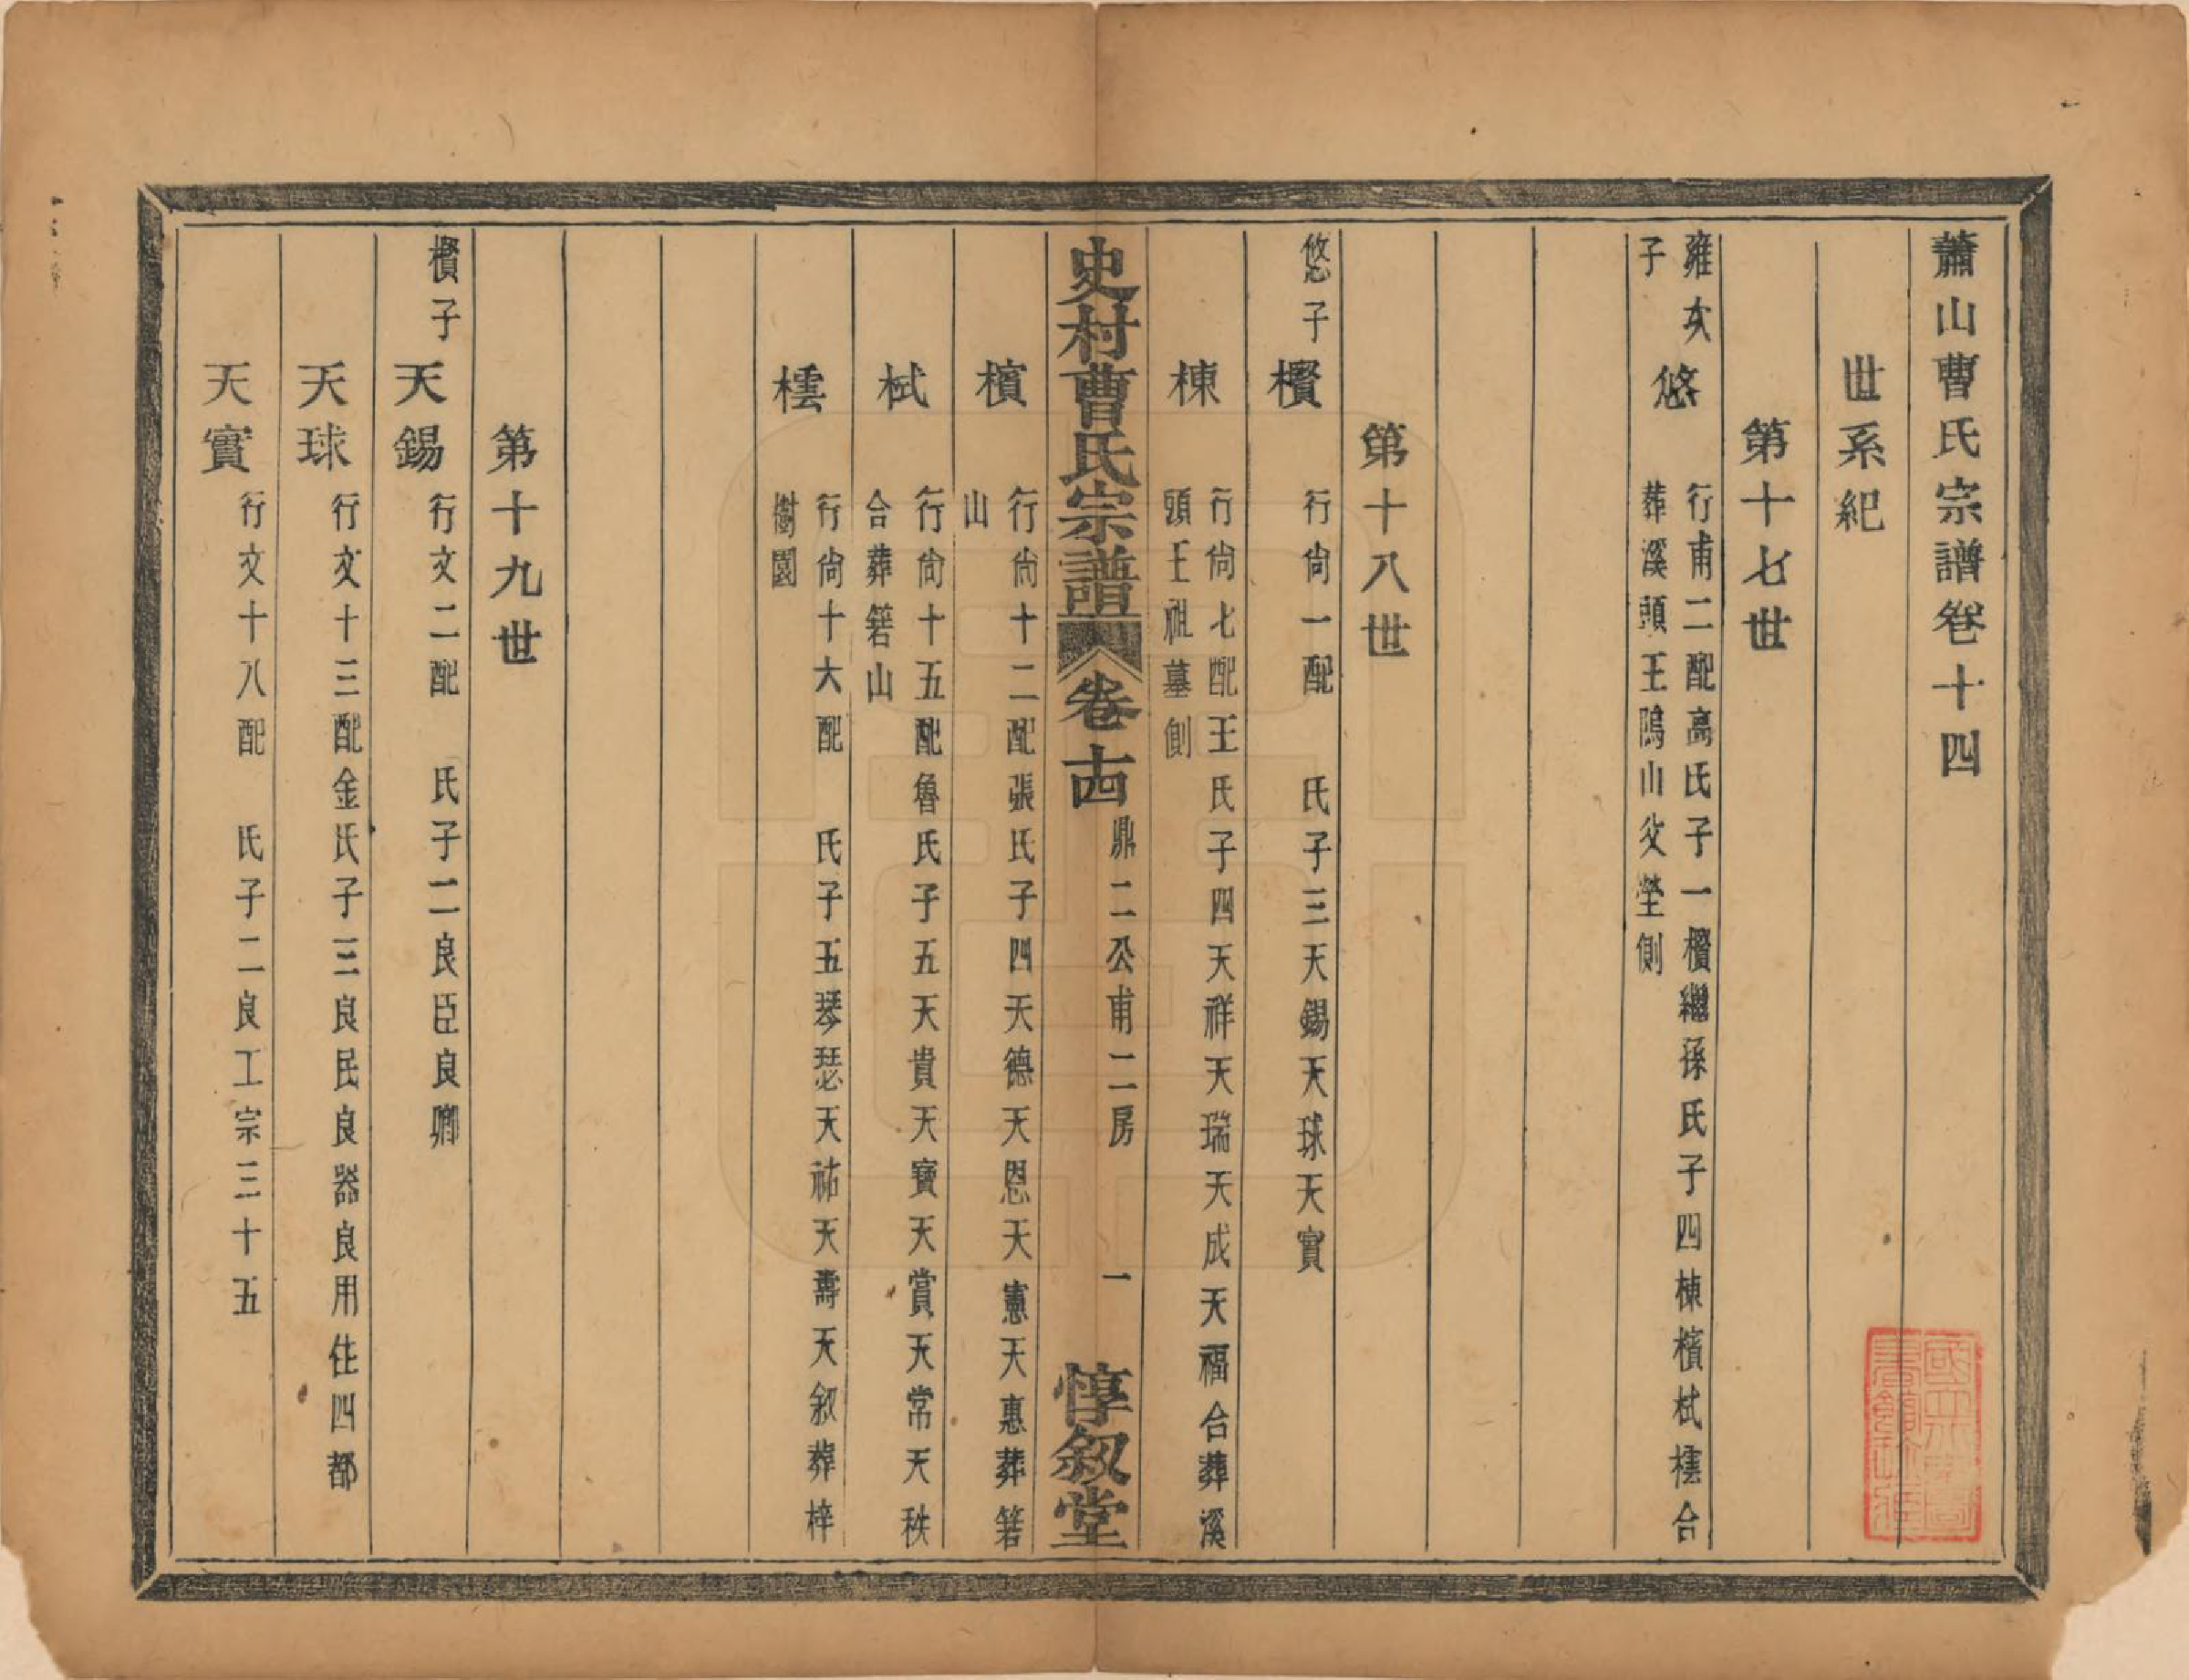 蕭山曹氏宗譜卷十四
世系紀
第十七世
雍次
子
悠
行甫二配高氏子一櫕繼孫氏子四棟檳栻橒合
葬溪頭王隖山父塋側
第十八世
悠子
櫕
行尙一配　氏子三天錫天球天寳
棟
行尙七配王氏子四天祥天瑞天成天福合葬溪
頭王祖墓側
史村曹氏宗譜
卷十四
鼎二公甫二房
一
惇叙堂
檳
行尙十二配張氏子四天德天恩天憲天惠葬箬
山
栻
行尙十五配魯氏子五天貴天寳天賞天常天秩
合葬箬山
橒
行尙十六配　氏子五琴瑟天祐天壽天叙葬梓
樹園
第十九世
櫕子
天錫
行文二配　氏子二良臣良卿
天球
行文十三配金氏子三良民良器良用住四都
天寳
行文十八配　氏子二良工宗三十五